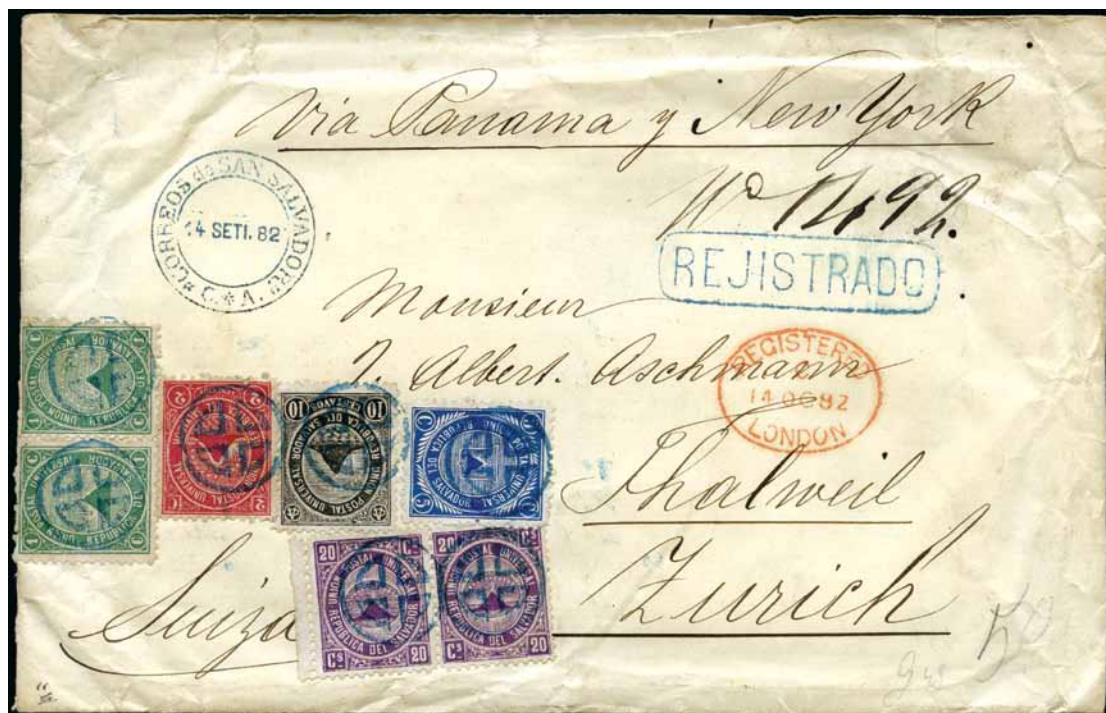 Via Panama y New York
CORREOS de SAN SALVADOR
14 SETI. 82
C. A.
REJISTRADO
Monsieur
J. Albert. Aschmann
REGISTERED
14 OC 82
LONDON
Thalweil
Zurich
Suiza
1 1
UNION POSTAL UNIVERSAL
REPUBLICA DEL SALVADOR
1 1
UNION POSTAL UNIVERSAL
REPUBLICA DEL SALVADOR
2 2
UNION POSTAL UNIVERSAL
2 2
10 10
CENTAVOS
REPUBLICA DEL SALVADOR
UNION POSTAL UNIVERSAL
5 5
UNION POSTAL UNIVERSAL
REPUBLICA DEL SALVADOR
20 Cs
UNION POSTAL UNIVERSAL
REPUBLICA DEL SALVADOR
Cs 20
20 Cs
UNION POSTAL UNIVERSAL
REPUBLICA DEL SALVADOR
Cs 20